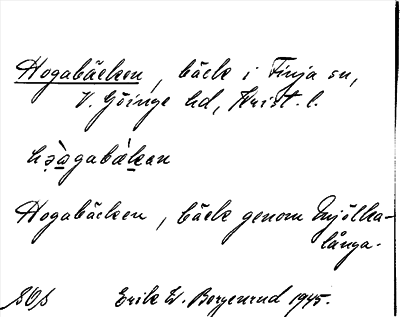 Hogabäcken, bäck i Finja sn,
V. Göinge hd, Krist. l.
hə̀agabäkan
Hogabäcken, bäck genom Mjölka-
långa.
Erik W. Bergenrud 1945.